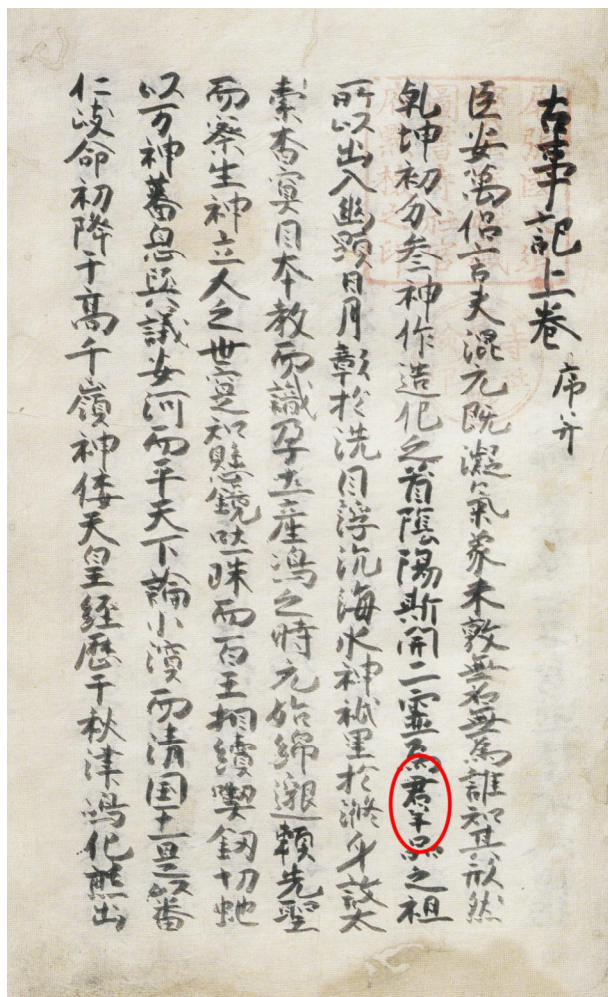 古事記上巻 序并
臣安萬侶言夫混元既凝氣象未敦無名無為誰知其形然
乾坤初分参神作造化之首陰陽斯開二霊為群品之祖
所以出入幽顕日月彰於洗目浮沉海水神祇呈於滌身故太
素杳冥因夲教而識孕土産嶋之時元始綿邈頼先聖
而察生神立人之世寔知懸鏡吐珠而百王相續喫釼切虵
以万神蕃息與議安河而平天下論小濱而清国土是以番
仁岐命初降于高千嶺神倭天皇経歴于秋津嶋化熊出